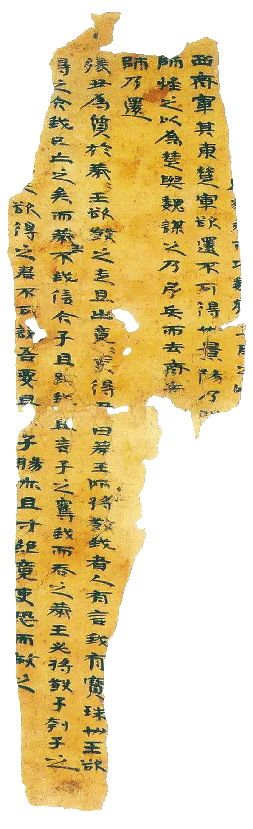 西齊軍其東楚軍欲還不可得也景陽乃
師怪之以為楚與魏謀之乃引兵而去齊
師乃還
張丑為質於燕王欲殺之走且出竟竟得丑曰燕王所將殺我者人有言我有寶珠也王欲
得之今我已亡之矣而燕不我信今子且致我我且言子之奪我而吞之燕王必將殺子刳子之
欲得之君不可說吾要且子腸亦且寸絕竟吏恐而赦之